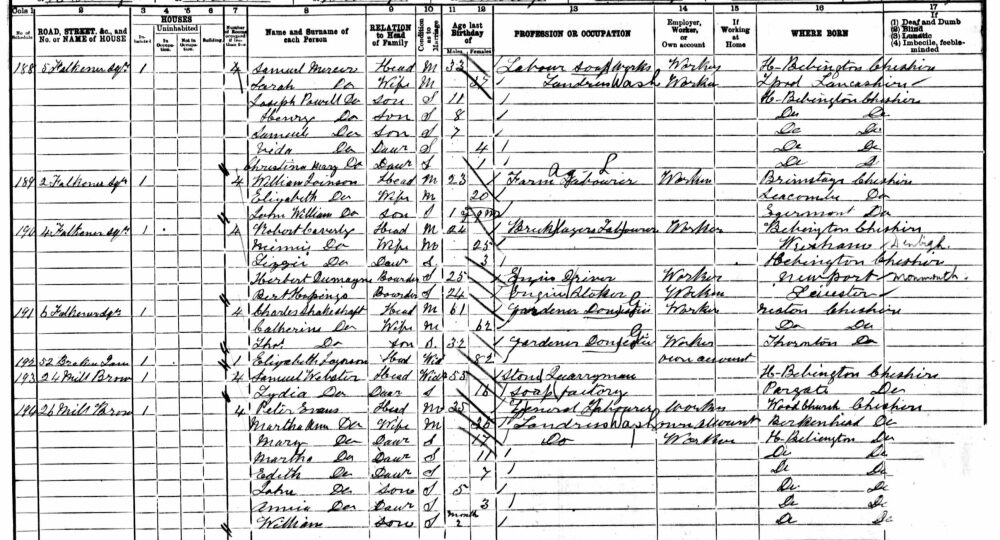 Cols 1 2 3 4 5 6 7 8 9 10 11 12 13 14 15 16 17
No. of Schedule ROAD, STREET, &c., and No. or NAME of HOUSE HOUSES Inhabited Uninhabited In Occupation Not in Occupation Building Name and Surname of each Person RELATION to Head of Family Condition as to Marriage Age last Birthday of Males Females PROFESSION OR OCCUPATION Employer, Worker, or Own account If Working at Home WHERE BORN If (1) Deaf and Dumb (2) Blind (3) Lunatic (4) Imbecile, feeble-minded
188 5 Falkener Sqr 1 4 Samuel Mercer Head M 32 Labour Soap Works Worker H-Bebington Cheshire
Sarah Do Wife M 27 Laundriss Wash Worker Lpool Lancashire
Joseph Powell Do Son S 11 H-Bebington Cheshire
Henry Do Son S 8 Do Do
Samuel Do Son S 7 Do Do
Vida Do Daur S 4 Do Do
Christina Mary Do Daur S 1 Do
189 2 Falkener Sqr 1 4 William Head M 23 Farm Labourer Worker Brimstage Cheshire
Elizabeth Do Wife M 20 Seacombe Do
John William Do Son S Egermont Do
190 4 Falkener Sqr 1 4 Robert Caverly Head M 24 Brick layers Labourer Worker Bebington Cheshire
Do Wife M 25 Wrexham Denbigh
Lizzie Do Daur S 3 Bebington Cheshire
Herbert Boarder S 25 Engin Driver Worker Newport Monmouth
Bert Boarder S 24 Engin Stoker Worker Leicester
191 6 Falkener Sqr 1 4 Charles Shakeshaft Head M 61 Gardener Worker Neston Cheshire
Catherine Do Wife M 62 Do Do
Thos. Do Son S 32 Gardener Worker Thornton Do
192 52 Lane 1 1 Elizabeth Head Wid 82 own account
193 24 Mill Brow 1 4 Samuel Webster Head Widr 55 Stone Quarryman H-Bebington Cheshire
Lydia Do Daur S 16 Soap factory Pargate Do
194 26 Mill Brow 1 4 Peter Evans Head M 35 General Labourer Worker Woodchurch Cheshire
Martha Ann Do Wife M Laundriss Wash own account Berkenhead Do
Mary Do Daur S 17 Do Worker H-Bebington Do
Martha Do Daur S 11 Do Do
Edith Do Daur S 7 Do Do
John Do Son S 5 Do Do
Annie Do Daur S 3 Do Do
William Son S month 2 Do Do